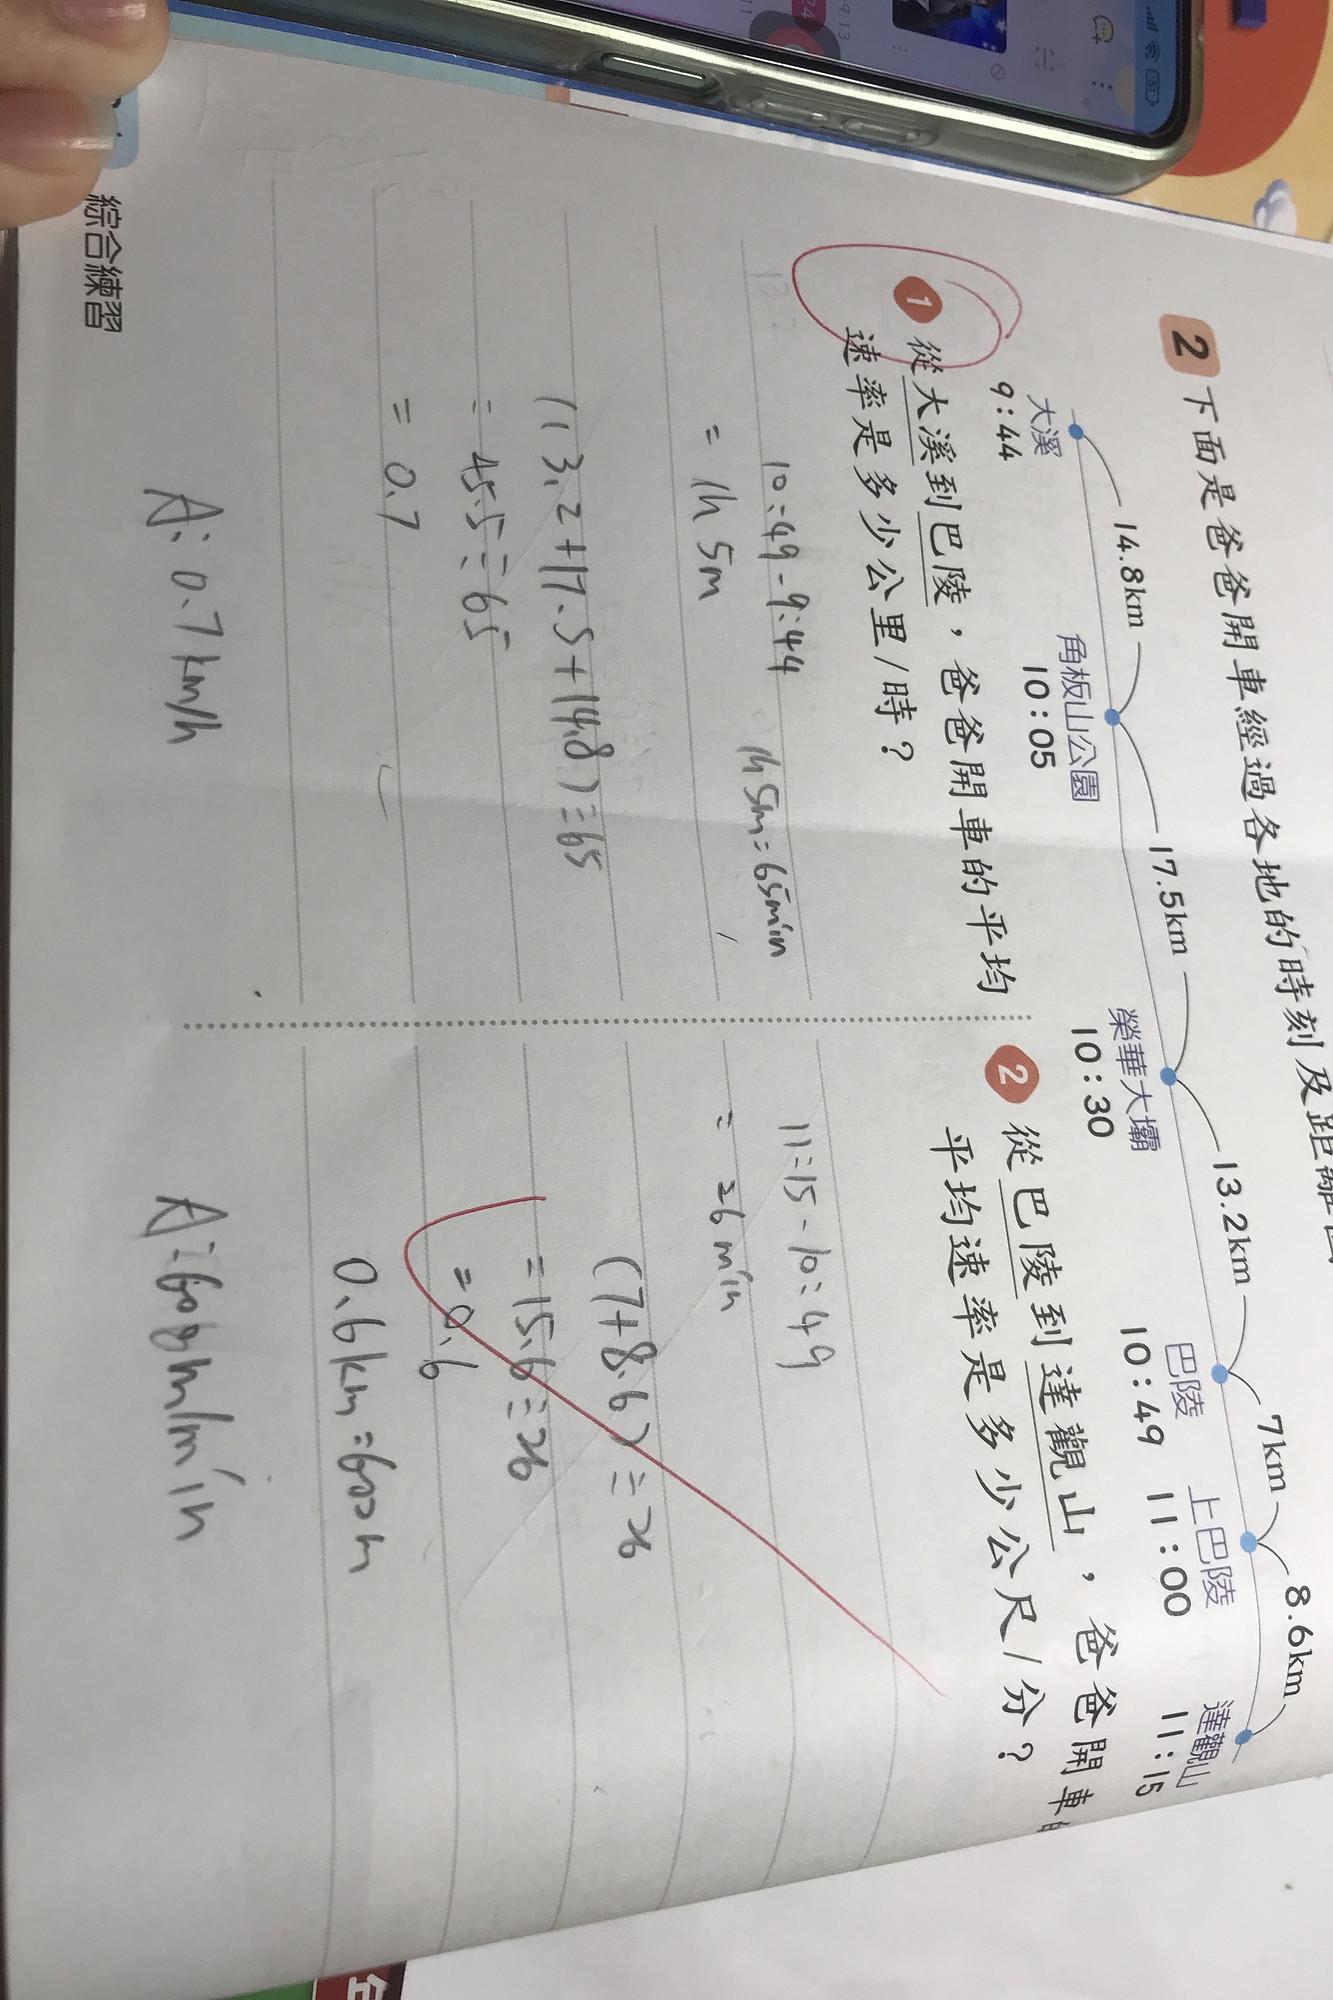 2 下面是爸爸開車經過各地的時刻及距離
14.8km 17.5km 13.2km 7km 8.6km
大溪 角板山公園 榮華大壩 巴陵 上巴陵 達觀山
9:44 10:05 10:30 10:49 11:00 11:15
1 從大溪到巴陵，爸爸開車的平均
速率是多少公里/時？
10:49-9:44
1h5m=65min
= 1h 5m
(13.2+17.5+14.8)÷65
= 45.5÷65
= 0.7
A: 0.7km/h
2 從巴陵到達觀山，爸爸開車
平均速率是多少公尺/分？
11:15-10:49
= 26min
(7+8.6)÷26
=15.6÷26
=0.6
0.6km=600m
綜合練習